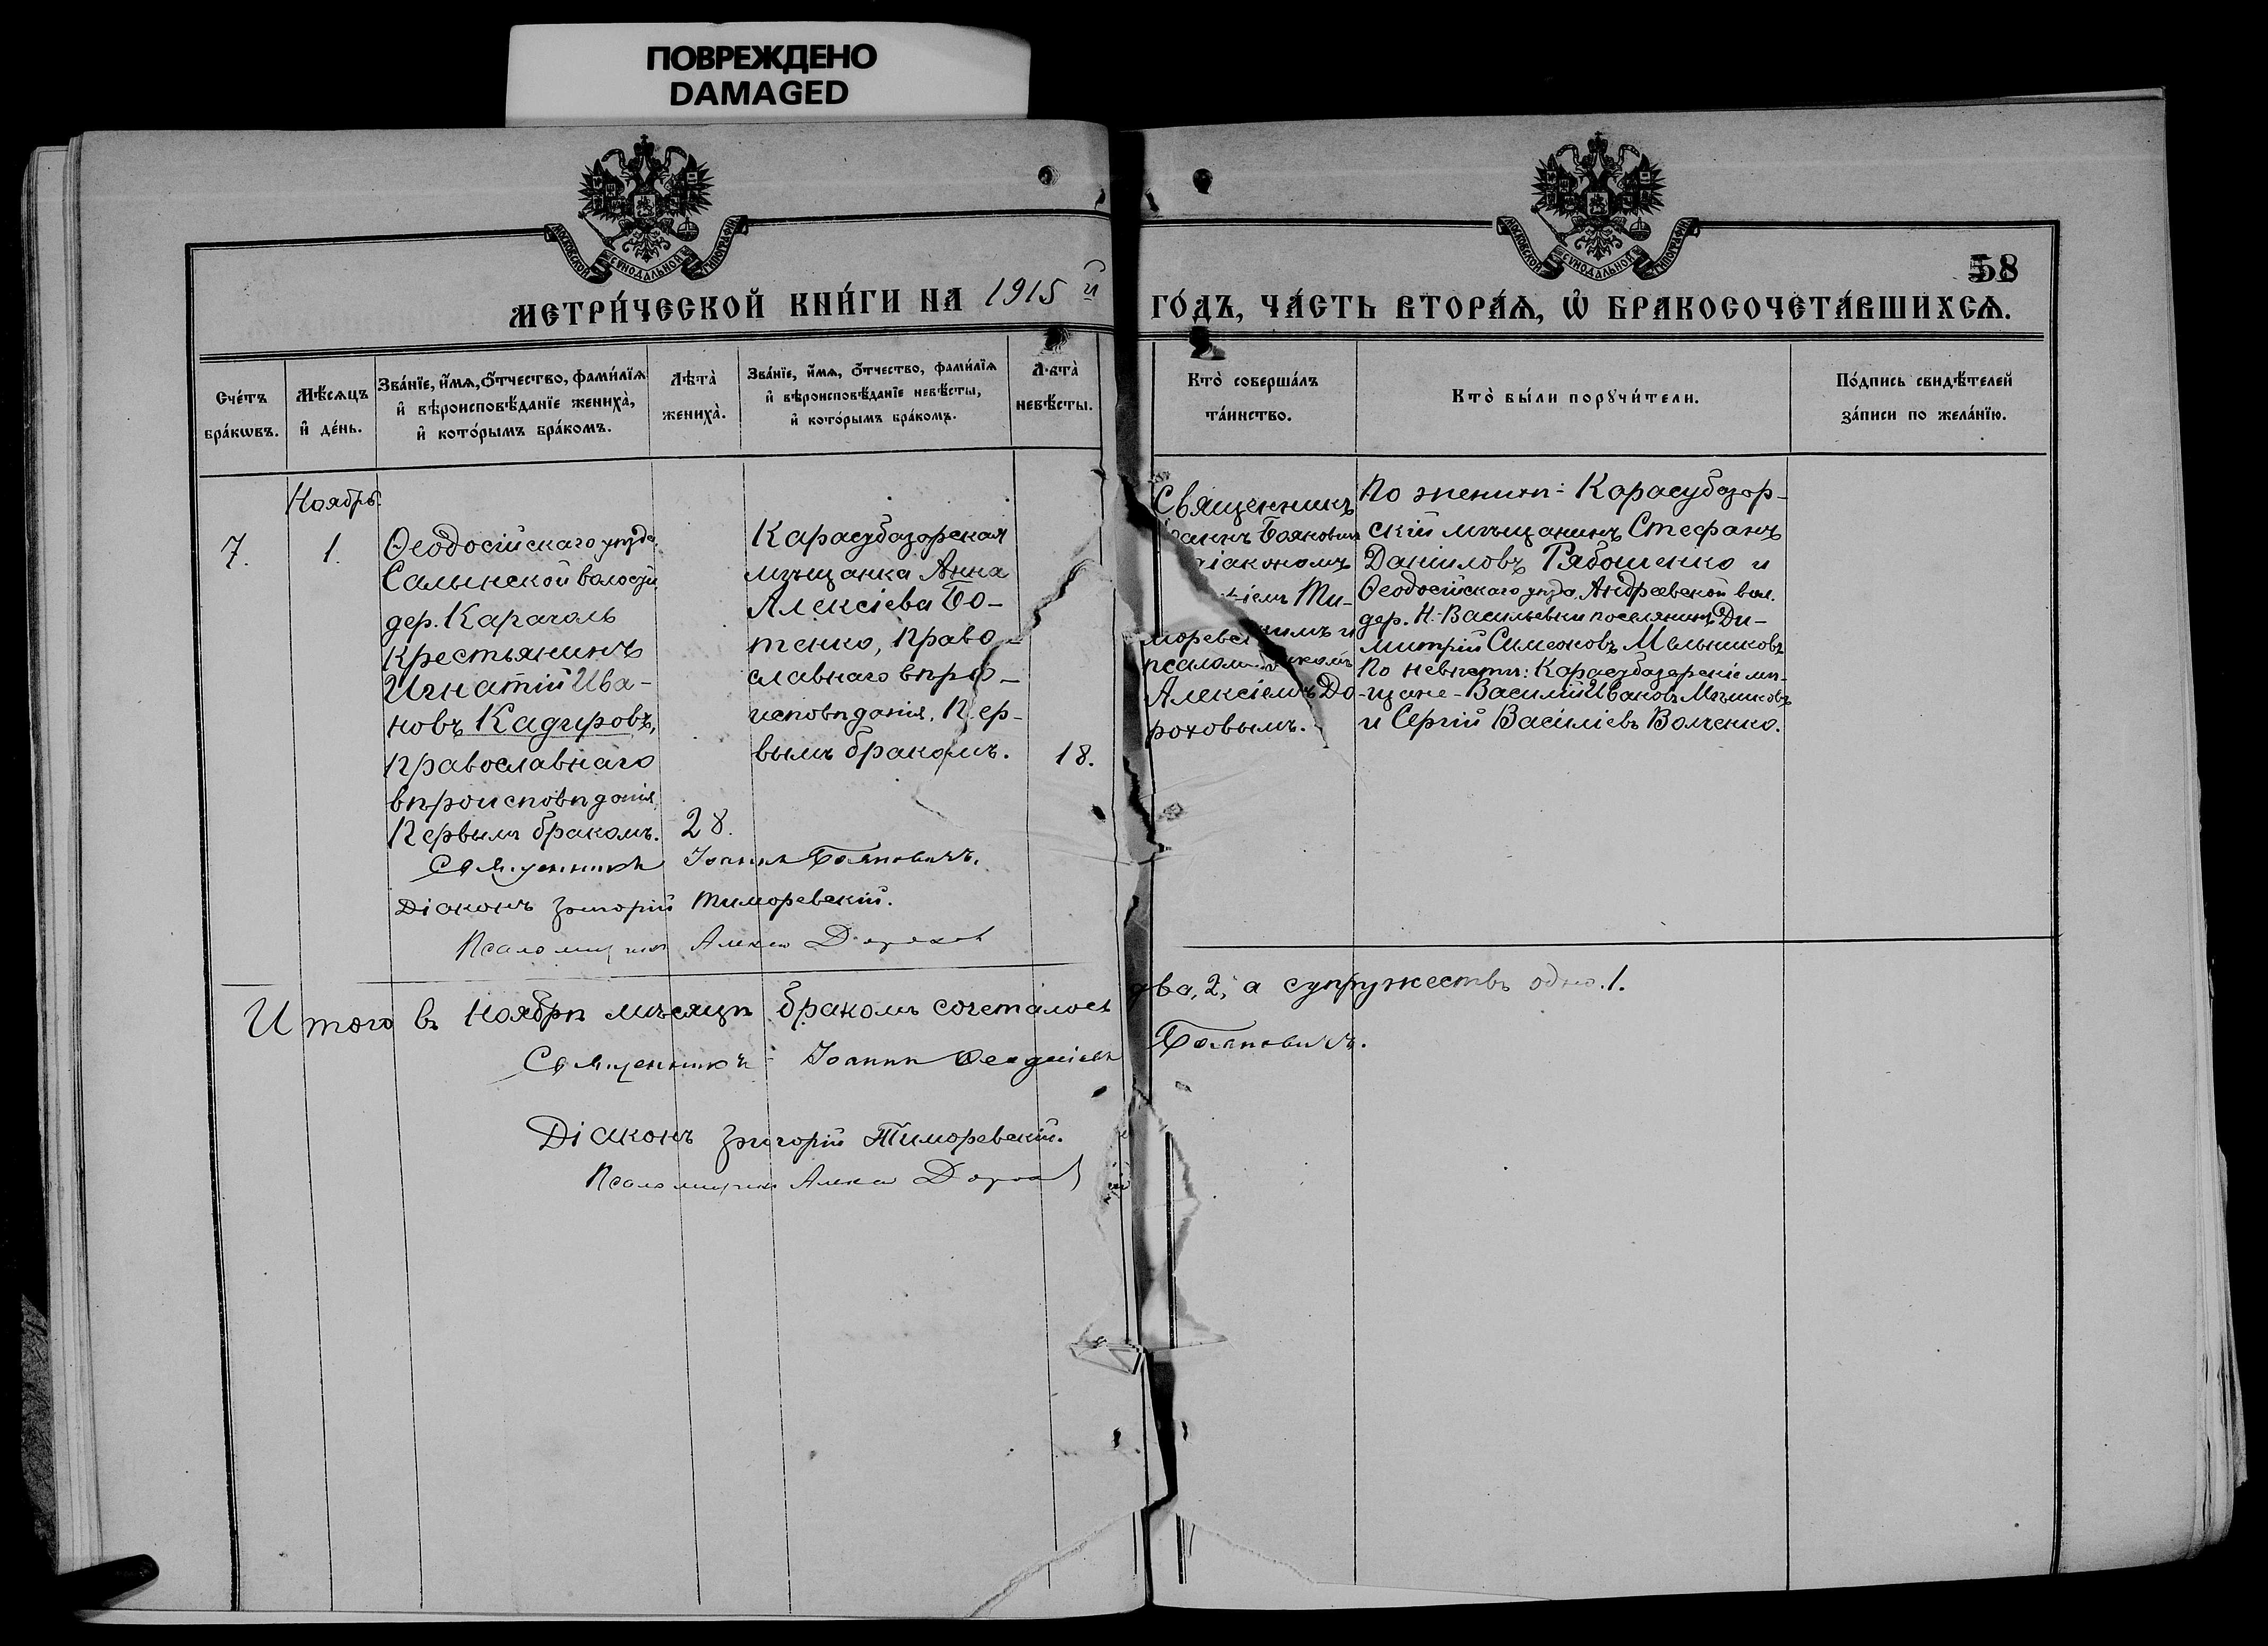 ПОВРЕЖДЕНО
DAMAGED
МОСКОВСКОЙ СѴНОДАЛЬНОЙ ТИПОГРАФІИ
МОСКОВСКОЙ СѴНОДАЛЬНОЙ ТИПОГРАФІИ
58
МЕТРИ́ЧЕСКОЙ КНИ́ГИ НА 1915 й
ГО́ДЪ, ЧА́СТЬ ВТОРА́Ѧ, Ѽ БРАКОСОЧЕТА́ВШИХСѦ.
Сче́тъ
бра́кѡвъ.
Мѣ́сѧцъ
и҆ де́нь.
Зва́нїе, и҆́мѧ, ѻ҆́тчество, фами́лїѧ
и҆ вѣроисповѣ́данїе жениха̀,
и҆ кото́рымъ бра́комъ.
Лѣта̀
жениха̀.
Зва́нїе, и҆́мѧ, ѻ҆́тчество, фами́лїѧ
и҆ вѣроисповѣ́данїе невѣ́сты,
и҆ кото́рымъ бра́комъ.
Лѣта̀
невѣ́сты.
Кто̀ соверша́лъ
та́инство.
Кто̀ бы́ли порꙋчи́тели.
По́дпись свидѣ́телей
за́писи по жела́нїю.
Ноябрь.
7.
1.
Ѳеодосійскаго уѣзда,
Салынской волости
дер. Карагозъ
крестьянинъ
Игнатій Ива-
новъ Кадировъ,
православнаго
вѣроисповѣданія,
Первымъ бракомъ.
28.
Карасубазарская
мѣщанка Анна
Алексіева Бо-
тенко, право-
славнаго вѣро-
исповѣданія. Пер-
вымъ бракомъ.
18.
Священникъ
Іоаннъ Баянович
діакономъ
Ти-
моревскимъ и
псаломщикомъ
Алексіемъ До-
роховымъ.
По женихѣ: Карасубазар-
скій мѣщанинъ Стефанъ
Даніиловъ Рябошенко и
Ѳеодосійскаго уѣзда, Андреевской вол.
дер. Н. Васильевки поселянинъ Ди-
митрій Симеоновъ Мельниковъ
По невѣстѣ: Карасубазарскіе мѣ-
щане - Василій Ивановъ Мѣшковъ
и Сергій Василіевъ Волченко.
Священникъ Іоаннъ Баяновичъ.
Діаконъ Григорій Тиморевскій.
Псаломщикъ Алексій Дорохов
Итого въ Ноябрѣ мѣсяцѣ бракомъ сочеталось два, 2, а супружествъ одно. 1.
Священникъ Іоаннъ Ѳеодосіевъ Баяновичъ.
Діаконъ Григорій Тиморевскій.
Псаломщикъ Алексій Дорохов